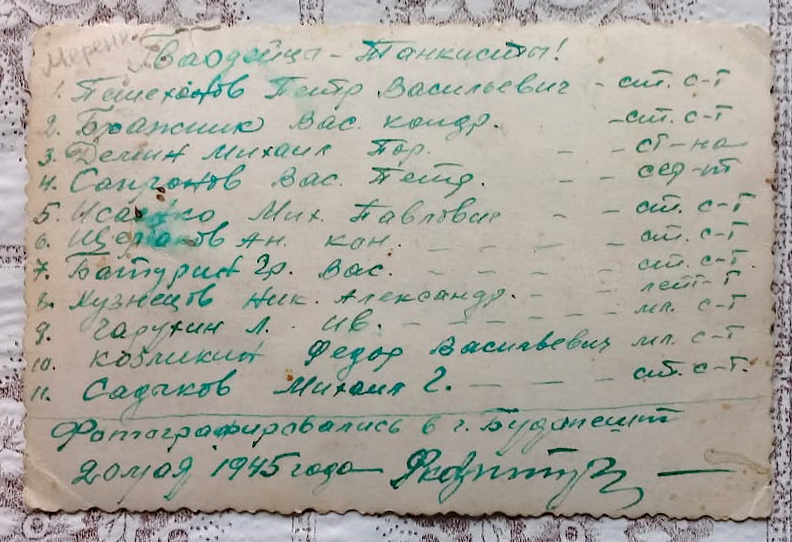 Гвардейцы - Танкисты!
1. Пешехонов Петр Васильевич - ст. с-т
2. Бражник Вас. Кондр. - ст. с-т
3. Демин Михаил Пор. - - ст-на
4. Сапронов Вас. Петр. - - сер-т
5. Исаенко Мих. Павлович - - ст. с-т
6. Щербаков Ан. Кон. - - - - ст. с-т
7. Батурин Гр. Вас. - - - - - ст. с-т
8. Кузнецов Ник. Александр. - - лейт-т
9. Чарухин Л. Ив. - - - - - - мл. с-т
10. Козликин Федор Васильевич мл. с-т
11. Садчков Михаил Г. - - - ст. с-т.
Фотографировались в г. Будапешт
20 мая 1945 года